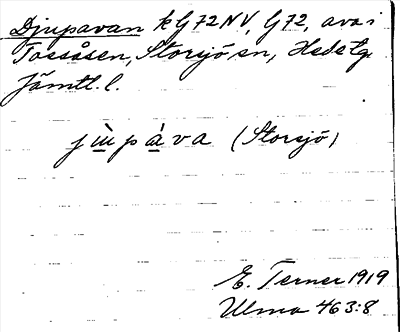 Djupavan kG72NV, G72, ava i
Tossåsen, Storsjö sn, Hede tg
Jämtl. l.
jùpàva (Storsjö)
E. Terner 1919
Ulma 463:8